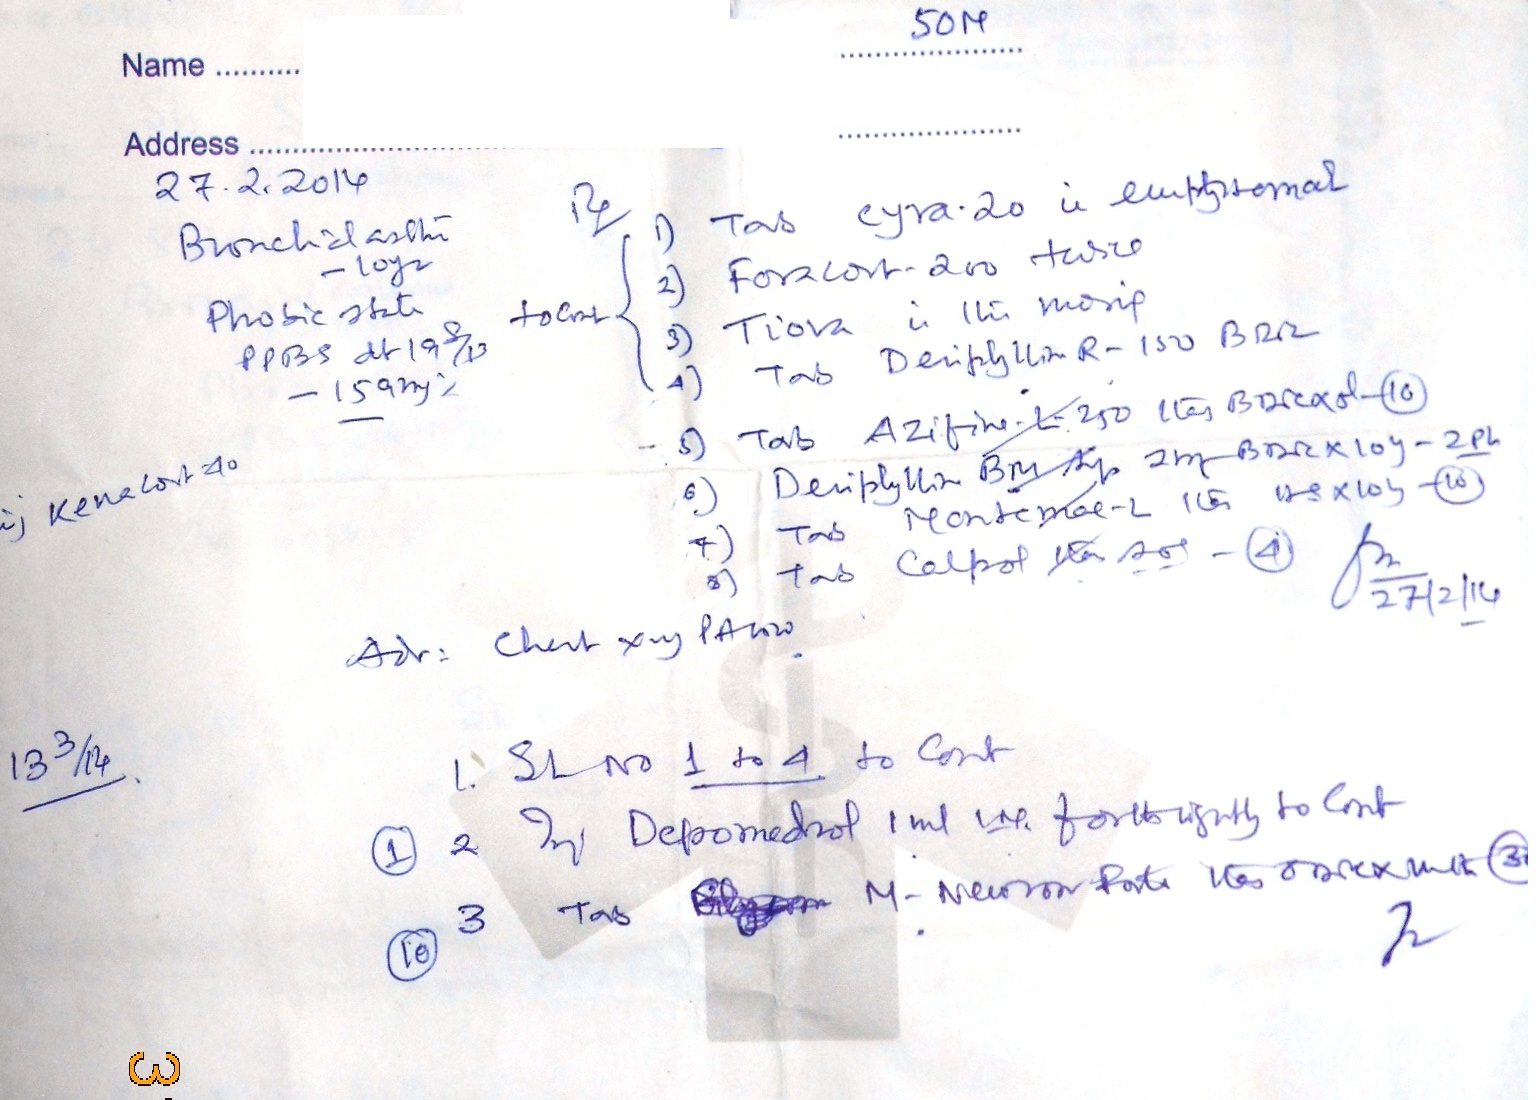 50M
Name ..........
Address ..............................
27.2.2014
Bronchial asth
- 10yr
Phobic state
PPBS dt 19 8/13
- 159mg%
Rx
to cont
1) Tab cyra-20 in empty stomach
2) Foracort-200 twice
3) Tiova in the morning
4) Tab Deriphyllin R-150
5) Tab Azifine-L-250 - 10
6) Deriphyllin 2ml x 10y - 2
7) Tab Montemac-L x 10y - 10
8) Tab Calpol sos - 4
27/2/14
Inj Kenacort 40
Adv: Chest xray PA view
13 3/14.
1. SL NO 1 to 4 to Cont
1 2 Inj Depomedrol 1ml I.M. fortnightly to Cont
3 Tab M-Neuron Forte
10
3